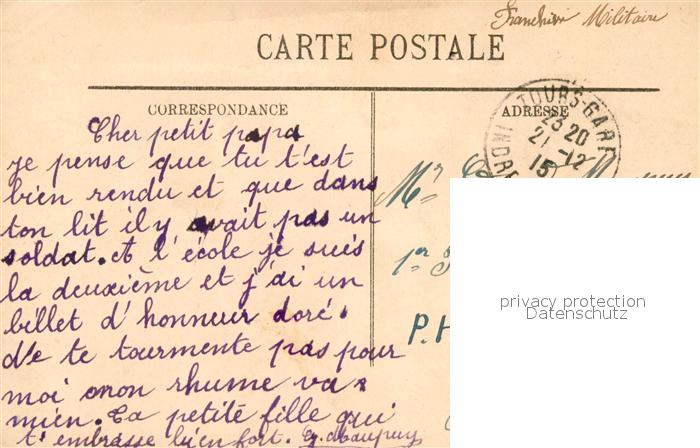 Franchise Militaire
CARTE POSTALE
CORRESPONDANCE
ADRESSE
TOURS-GARE
23 20
21 -12
15
INDRE
Cher petit papa
je pense que tu t'est
bien rendu et que dans
ton lit il y avait pas un
soldat. A l'école je suis
la deuxième et j'ai un
billet d'honneur doré.
Ne te tourmente pas pour
moi mon rhume va
mien. Ta petite fille qui
t'embrasse bien fort.
Mr
1er
P. H
privacy protection
Datenschutz